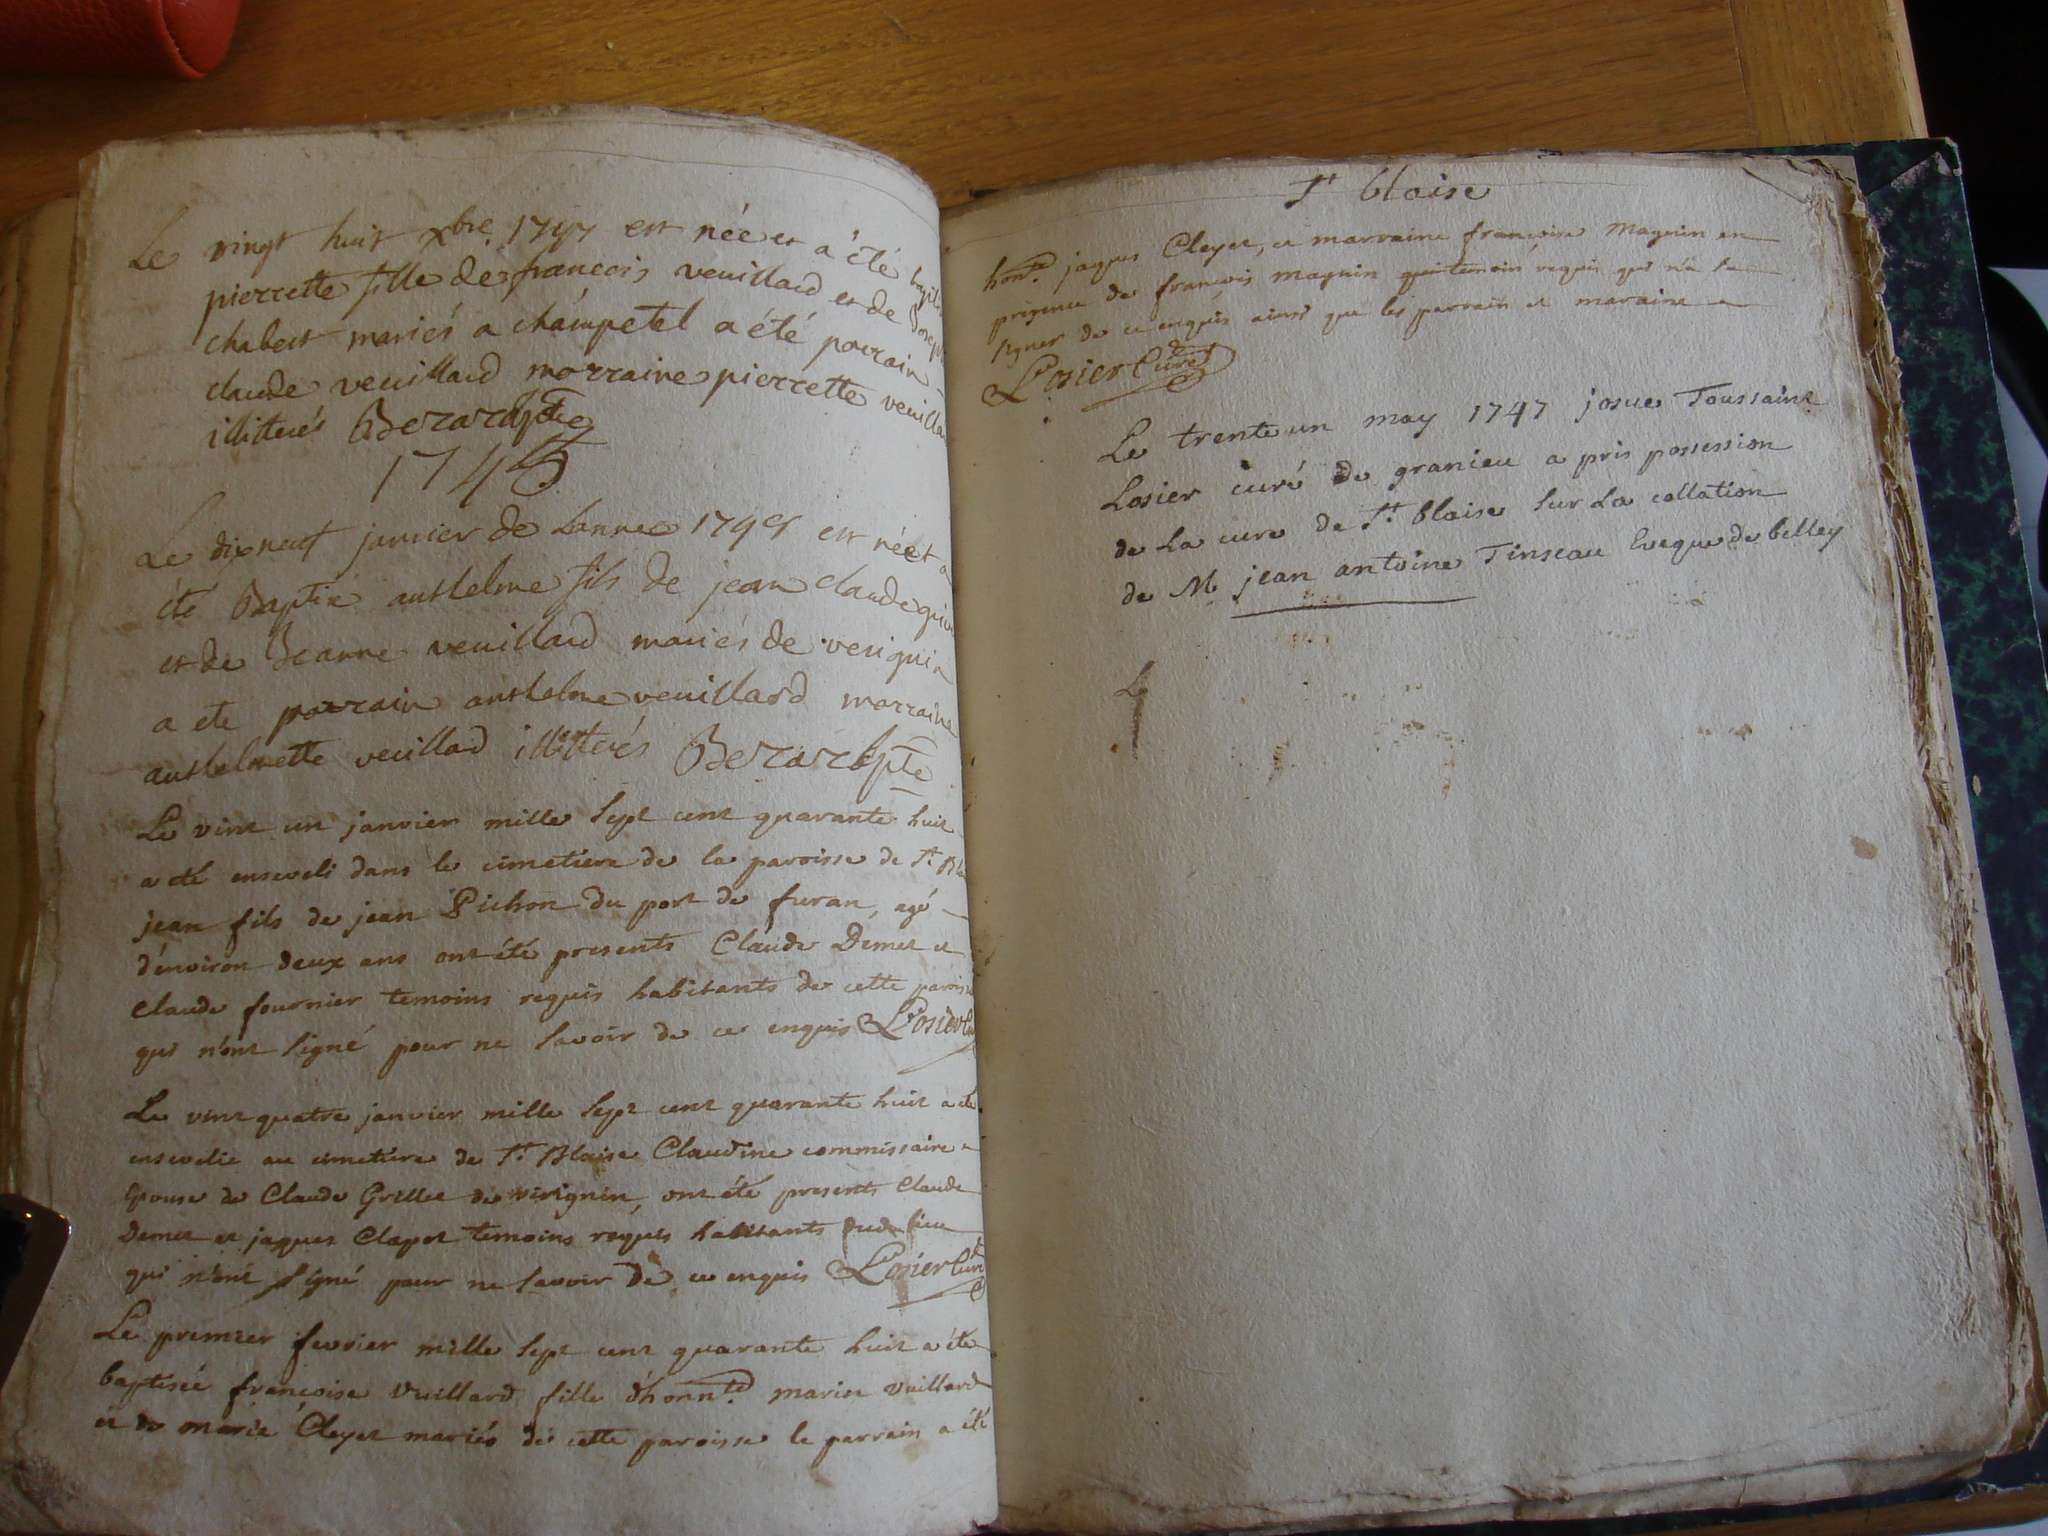 Le vingt huit xbre 1747 est née et a été
pierrette fille de francois veuillard et de
chabert mariés a champetel a été parrain
claude veuillard marraine pierrette
illiterés Berard ptre
1748
Le dix neuf janvier de Lannee 1748 est né et a
été Baptize anthelme fils de jean claude
et de Jeanne veuillard mariés de
a ete parrain anthelme veuillard marraine
anthelmette veuillad illiterés Berard ptre
Le vint un janvier mille sept cent quarante huit
a été enseveli dans le cimetiere de la paroisse de St
jean fils de jean Pichon du port de furan, agé
d'environ deux ans ont été presents Claude Demet et
claude fournier temoins requis habitants de cette
qui n'ont signé pour ne savoir de ce enquis Losier
Le vint quatre janvier mille sept cent quarante huit a été
ensevelie au cimetiere de St Blaise Claudine commissaire
Epouse de Claude Grillet de virignin, ont été presents Claude
Demet et jaques Clapot temoins requis habitants dud. lieu
qui n'ont signé pour ne savoir de ce enquis Losier Curé
Le premier fevrier mille sept cent quarante huit a été
baptisée francoise Vuillard fille d'honnte. marin Vuillard
et de marie Cleyet mariés de cette paroisse le parrain a été
St blaise
honte. jaques Cleyet, et marraine francoise Magnin en
presence de françois magnin temoin requis qui n'a su
signer de ce enquis ainsi que les parrain et maraine
Losier Curé
Le trente un may 1747 josue Toussaint
Losier curé de granieu a pris possession
de La cure de St. blaise sur La collation
de M. jean antoine Tinseau Eveque de belley
Le